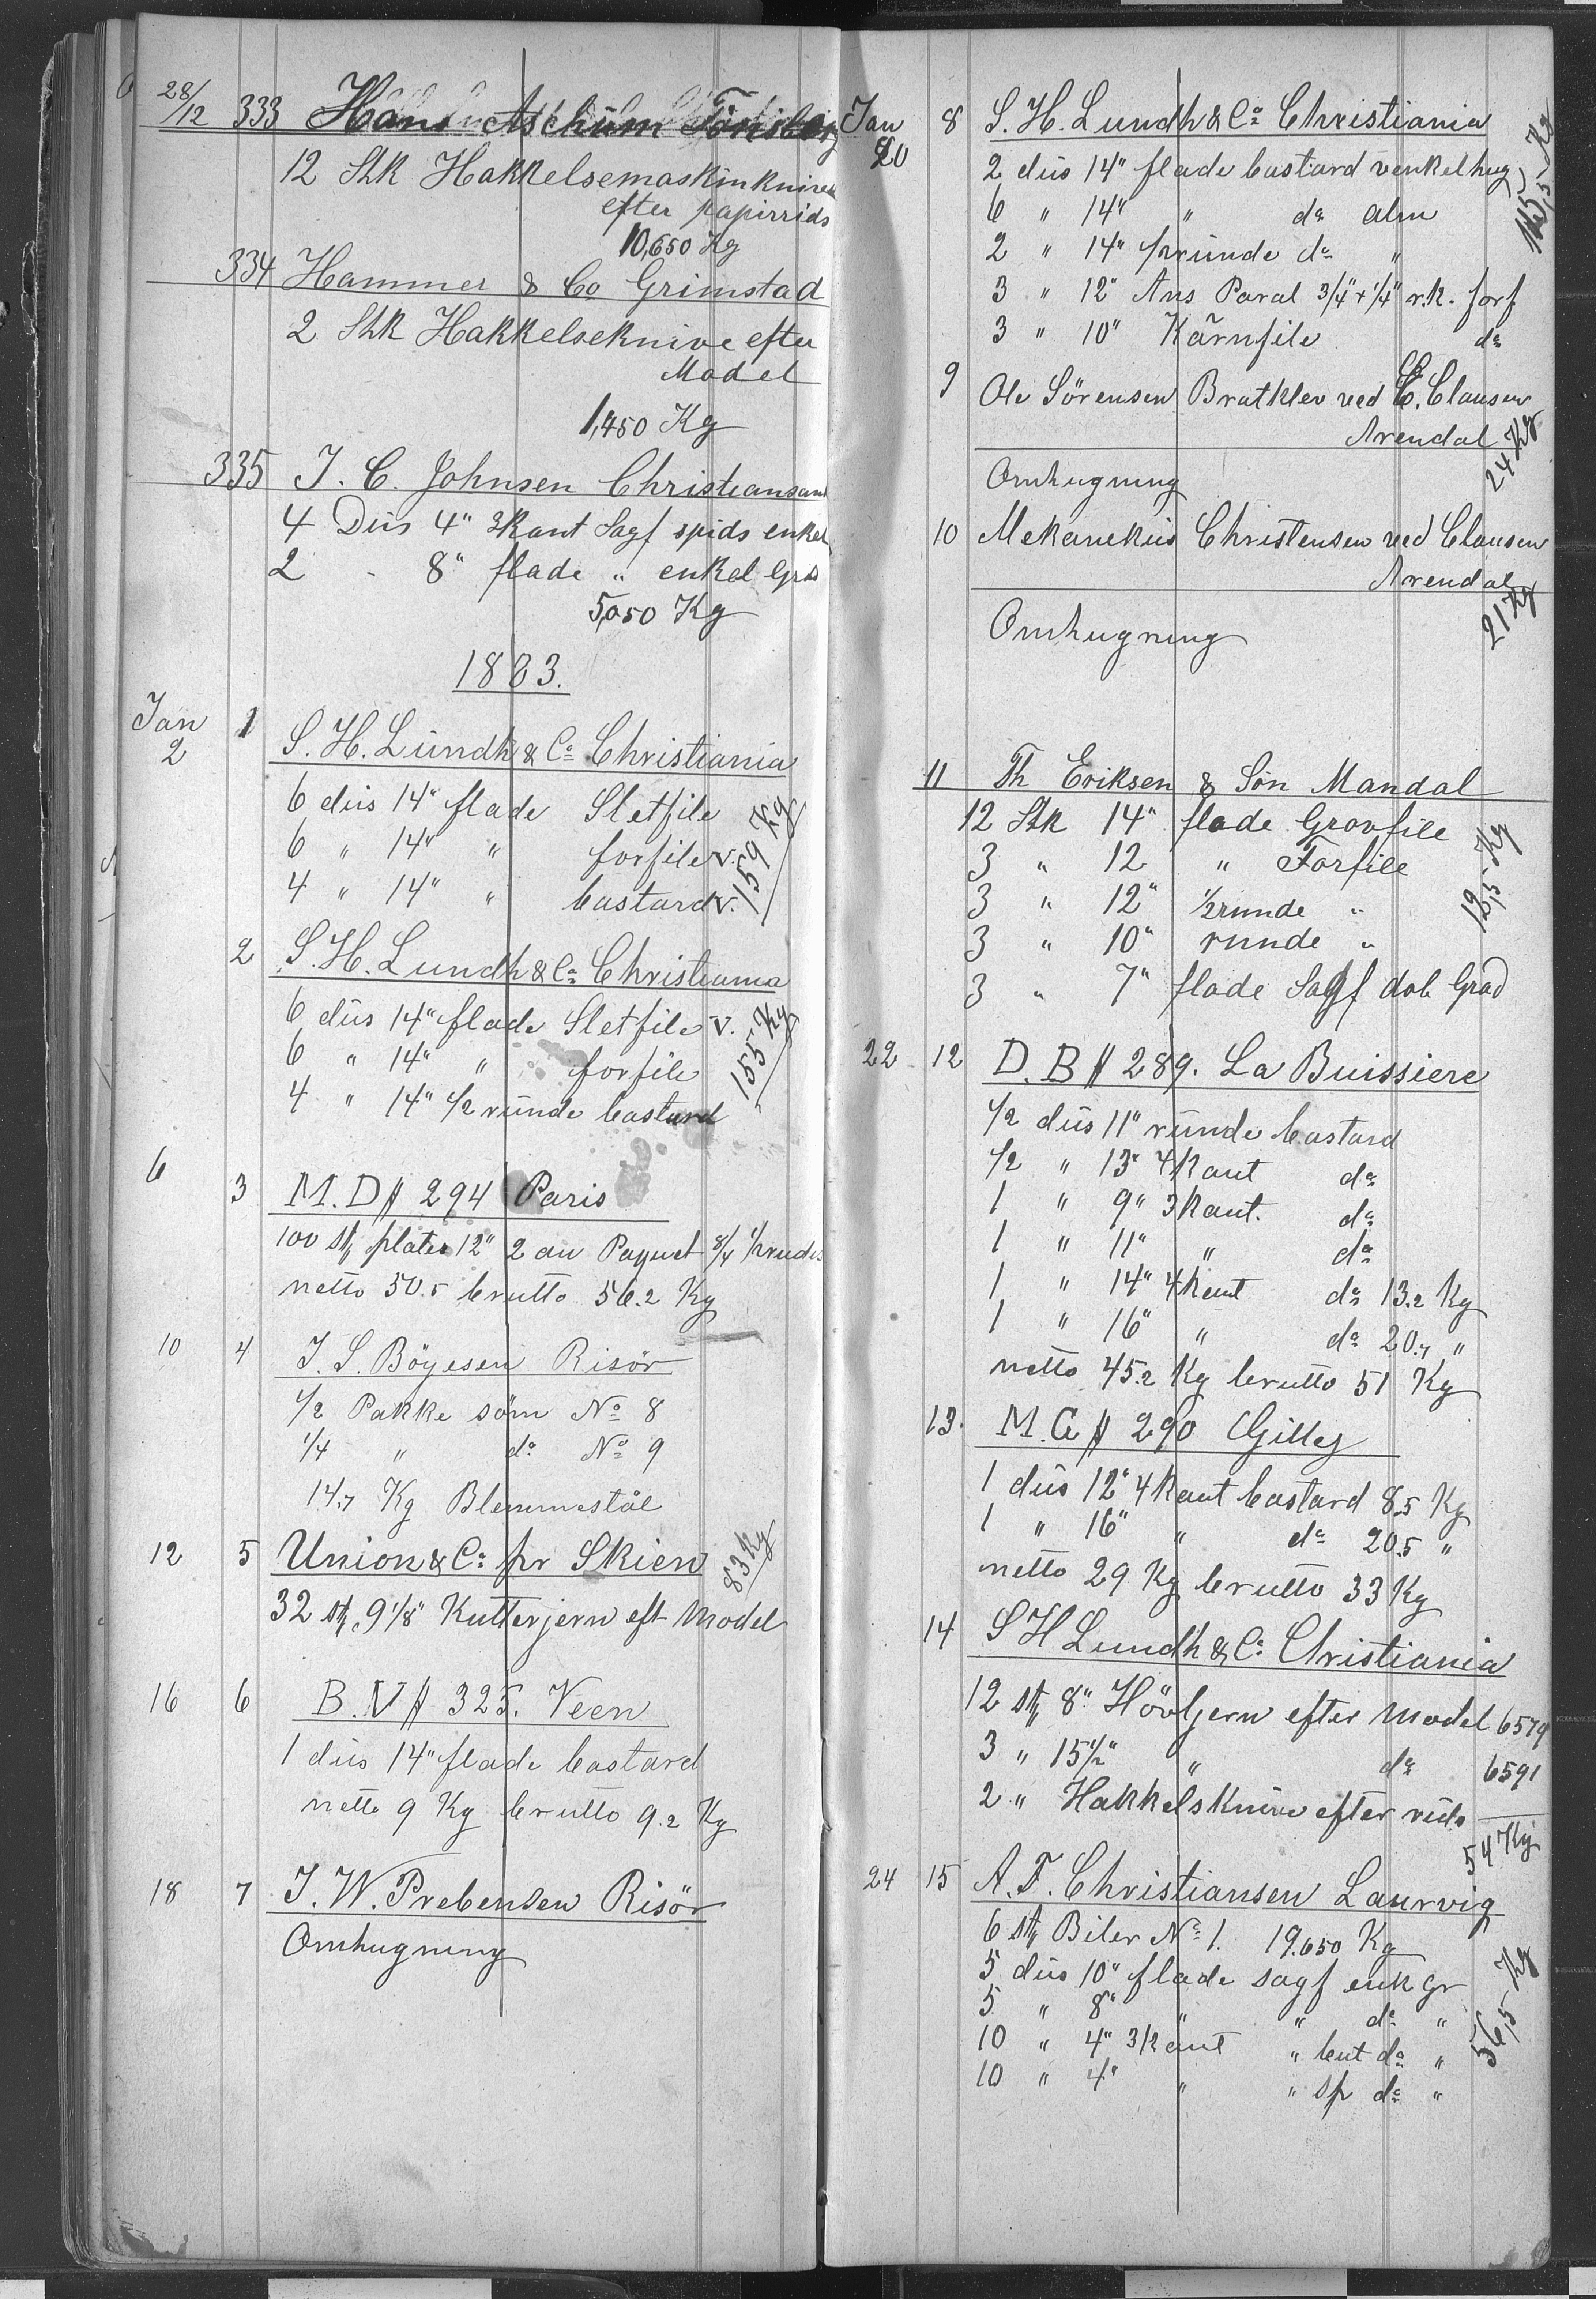 28/12 333 Hans Aschüm Tönsberg
12 Stk Hakkelsemaskinknive
efter papirrids
10,650 Kg
334 Hammer & Co Grimstad
2 Stk Hakkelseknive efter
Model
1,450 Kg
335 J. C. Johnsen Christiansand
4 Düs 4" 3kant Sagf spids enkel
2 - 8" flade " enkel Grad
5,050 Kg
1883.
Jan 2 1 S. H. Lündh & Co Christiania
6 düs 14" flade Sletfile
6 " 14" " forfile v.
4 " 14" " bastard v.
159 Kg
2 S. H. Lundh & Co Christiania
6 düs 14" flade Sletfile v.
6 " 14" " forfile
4 " 14" 1/2 ründe bastard
155 Kg
6 3 M. D # 294 Paris
100 stk plates 12" 2 au Paquet 8/4 1/2 rudes
netto 50.5 brutto 56.2 Kg
10 4 J. S. Böyesen Risör
1/2 Pakke söm No 8
1/4 " do No 9
14.7 Kg Blemmestål
12 5 Union & Co pr Skien
83 Kg
32 stk 9 1/8" Kutterjern eft Model
16 6 B. V # 325. Veen
1 düs 14" flade bastard
netto 9 Kg brutto 9.2 Kg
18 7 J. W. Prebensen Risör
Omhugning
Jan 20 8 S. H. Lundh & Co Christiania
2 düs 14" flade bastard venkelhug
6 " 14" " do alm
2 " 14" 1/2 ründe do "
3 " 12" Ans Paral 3/4" x 1/4" r.k. forf
3 " 10" Kärnfile do
115,5 Kg
9 Ole Sörensen Bratklev ved C. Clausen
Arendal
24 Kg
Omhugning
10 Mekanekus Christensen ved Clausen
Arendal
21 Kg
Omhugning
11 Th Eriksen & Sön Mandal
12 Stk 14" flade Grovfile
3 " 12 " Forfile
3 " 12" 1/2 runde "
3 " 10" runde "
3 " 7" flade Sagf dob Grad
12,5 Kg
22 12 D. B # 289. La Buissiere
1/2 düs 11" ründe bastard
1/2 " 13" 4kant do
1 " 9" 3kant. do
1 " 11" " do
1 " 14" 4kant do 13.2 Kg
1 " 16" " do 20.7 "
netto 45.2 Kg brutto 51 Kg
13. M. G # 290 Gilly
1 düs 12" 4kant bastard 8.5 Kg
1 " 16" " do 20.5 "
netto 29 Kg brutto 33 Kg
14 S H Lundh & Co Christiania
12 stk 8" Hövljern efter Model 6579
3 " 15 1/2" " do 6591
2 " Hakkelsknive efter rids
54 Kg
24 15 A. F. Christiansen Laurvig
6 stk Biler No 1. 19.650 Kg
5 düs 10" flade sagf enk gr
5 " 8" " " do "
10 " 4" 3kant " but do "
10 " 4" " " sp do "
56,5 Kg